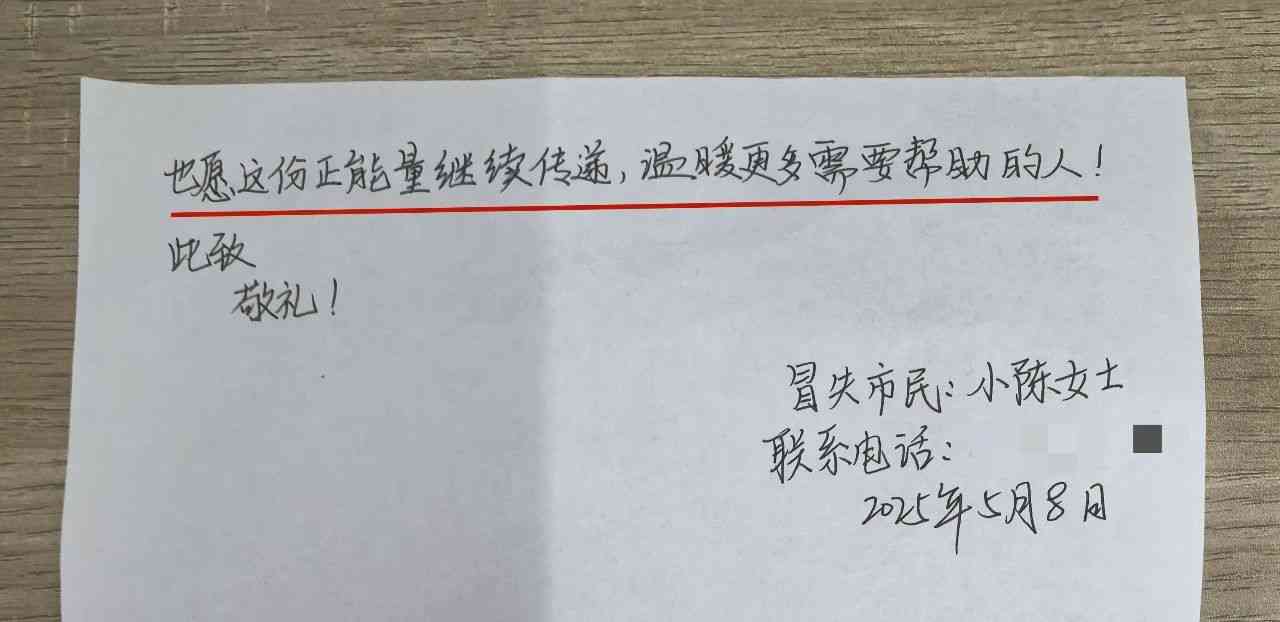 也愿这份正能量继续传递,温暖更多需要帮助的人!
此致
敬礼!
冒失市民:小陈女士
联系电话:
2025年5月8日